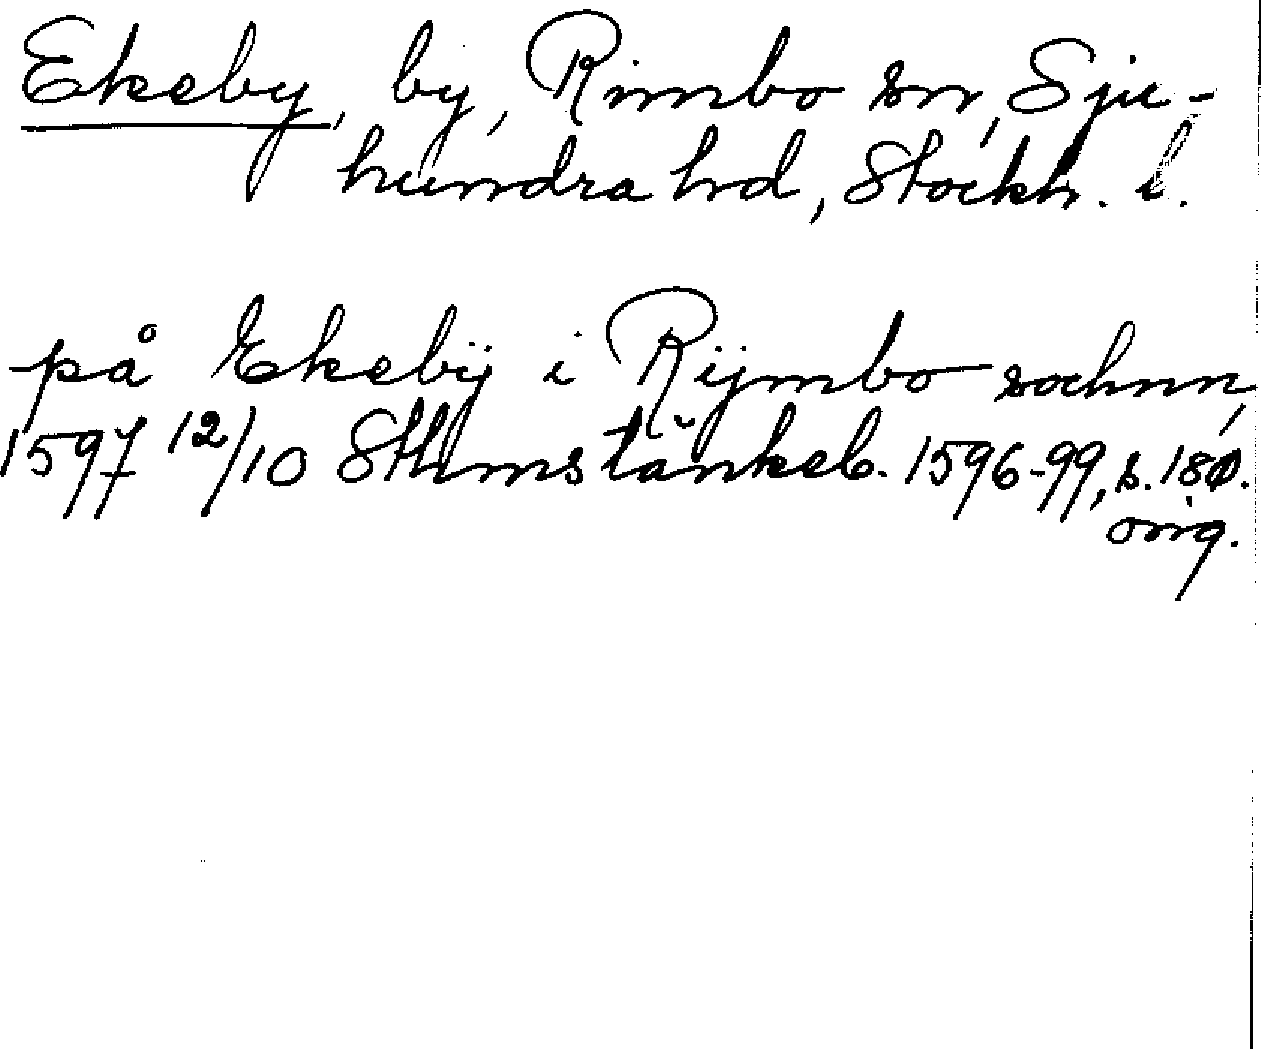 Ekeby, by, Rimbo sn, Sju-
hundra hd, Stockh. l.
på Ekebÿ i Rijmbo sochnn,
1597 12/10 Sthms tänkeb. 1596-99, s. 180.
orig.